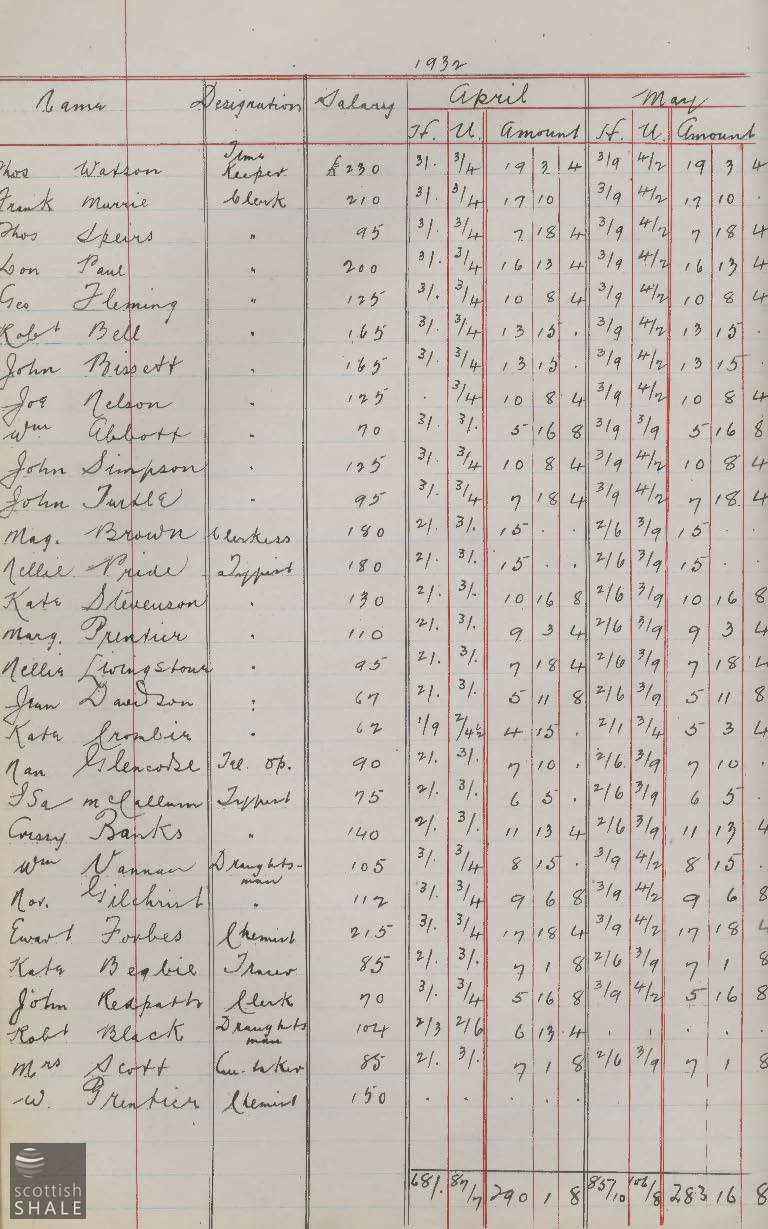 1932
Name Designation Salary April May
H. U. Amount H. U. Amount
Thos Watson Time Keeper £230 3/. 3/4 19 3 4 3/9 4/2 19 3 4
Frank Murrie Clerk 210 3/. 3/4 17 10 3/9 4/2 17 10 .
Thos Speirs " 95 3/. 3/4 7 18 4 3/9 4/2 7 18 4
Don Paul " 200 3/. 3/4 16 13 4 3/9 4/2 16 13 4
Geo Fleming " 125 3/. 3/4 10 8 4 3/9 4/2 10 8 4
Robt Bell " 165 3/. 3/4 13 15 . 3/9 4/2 13 15 .
John Bissett " 165 3/. 3/4 13 15 . 3/9 4/2 13 15 .
Joe Nelson " 125 . 3/4 10 8 4 3/9 4/2 10 8 4
Wm Abbott " 70 3/. 3/. 5 16 8 3/9 3/9 5 16 8
John Simpson " 125 3/. 3/4 10 8 4 3/9 4/2 10 8 4
John Turtle " 95 3/. 3/4 7 18 4 3/9 4/2 7 18 4
Mag. Brown Clerkess 180 2/. 3/. 15 . . 2/6 3/9 15 . .
Nellie Pride Typist 180 2/. 3/. 15 . . 2/6 3/9 15 . .
Kate Stevenson " 130 2/. 3/. 10 16 8 2/6 3/9 10 16 8
Marg. Prentier " 110 2/. 3/. 9 3 4 2/6 3/9 9 3 4
Nellie Livingstone " 95 2/. 3/. 7 18 4 2/6 3/9 7 18 4
Jean Davidson " 67 2/. 3/. 5 11 8 2/6 3/9 5 11 8
Kate Crombie " 62 1/9 2/4½ 4 15 . 2/1 3/4 5 3 4
Nan Glencorse Tel. Op. 90 2/. 3/. 7 10 . 2/6 3/9 7 10 .
ISa McCallum Typist 75 2/. 3/. 6 5 . 2/6 3/9 6 5 .
Crissy Banks " 140 2/. 3/. 11 13 4 2/6 3/9 11 13 4
Wm Vannan Draughts-man 105 3/. 3/4 8 15 . 3/9 4/2 8 15 .
Nor. Gilchrist " 112 3/. 3/4 9 6 8 3/9 4/2 9 6 8
Ewart Forbes Chemist 215 3/. 3/4 17 18 4 3/9 4/2 17 18 4
Kate Begbie Tracer 85 2/. 3/. 7 1 8 2/6 3/9 7 1 8
John Redpath Clerk 70 3/. 3/4 5 16 8 3/9 4/2 5 16 8
Robt Black Draughts man 104 2/3 2/6 6 13 4 . . . . .
Mrs Scott Care taker 85 2/. 3/. 7 1 8 2/6 3/9 7 1 8
W. Prentier Chemist 150 . . . . .
68/. 87/7 290 1 8 85/10 106/8 283 16 8
scottish
SHALE